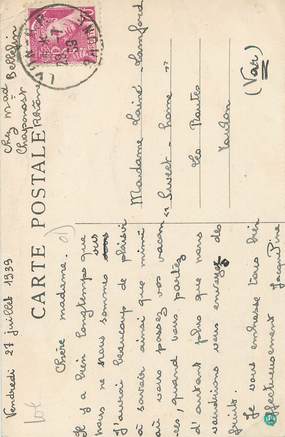 Vendredi 27 juillet 1939
Chez Mad Bellefin
Chaponost
Rhône
CARTE POSTALE
Chère madame.
Il y a bien longtemps que
nous ne nous sommes vus
J'aurai beaucoup de plaisir
à savoir ainsi que mimi
où vous passez vos vacan
ces, quand vous partez
d'autant plus que nous
voudrions vous envoyer de
fruits.
Je vous embrasse tous bien
affectueusement Jacqueline
Madame Lainé-Lansford
"Sweet-home"
Les Routes
Toulon
(Var)